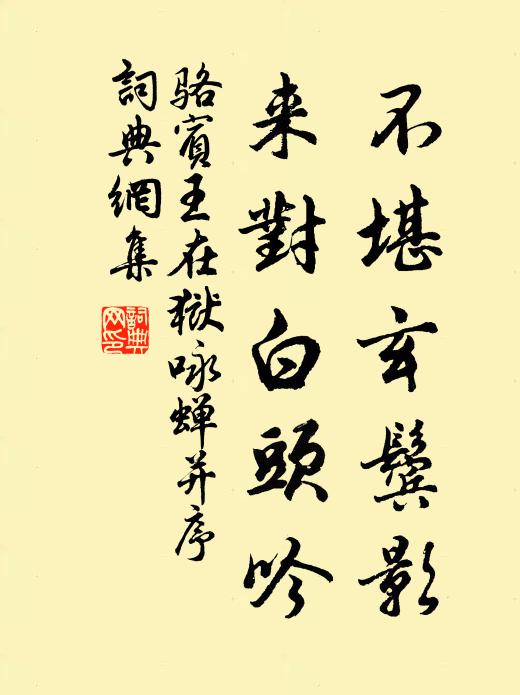 不堪玄鬢影
来對白頭吟
駱賓王在獄咏蝉并序
詞典網集
詞典网印